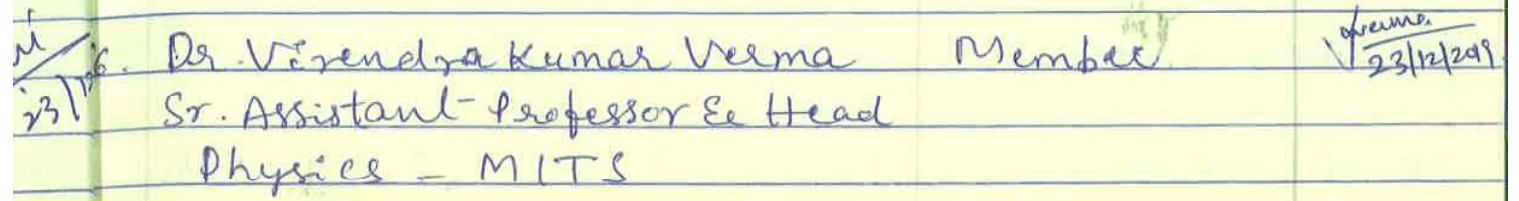 6. Dr. Virendra Kumar Verma Member Verma
23/12/2019
23/12
Sr. Assistant Professor & Head
Physics - MITS